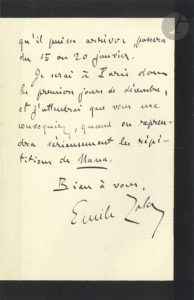 qu'il puisse arriver passera
du 15 au 20 janvier.
Je serai à Paris dans
les premiers jours de décembre,
et j'attendrai que vous me
convoquiez, quand on repren-
dra sérieusement les répé-
titions de Nana.
Bien à vous,
Emile Zola